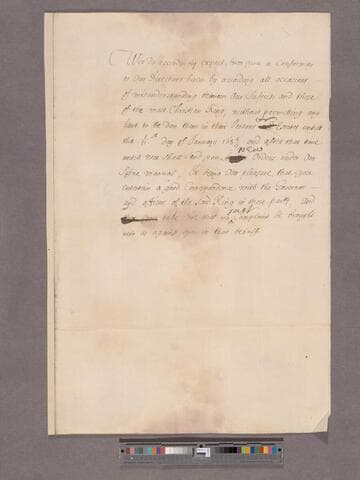 Wee do accordingly expect, from you a Conformity
to Our Directions herein by avoiding all occasions
of misunderstanding between Our Subjects and those
of the most Christian King, without permitting any
hurt to be don them in their Persons or Estates untill
the day of January 168 and after that time
untill wee shall send you Orders under Our
Signe manual, It being Our pleasure that you
entertain a good Correspondence with the Governor
and officers of the said King in those parts, And
take care that no just Complaint be brought
unto us against you in that behalf.